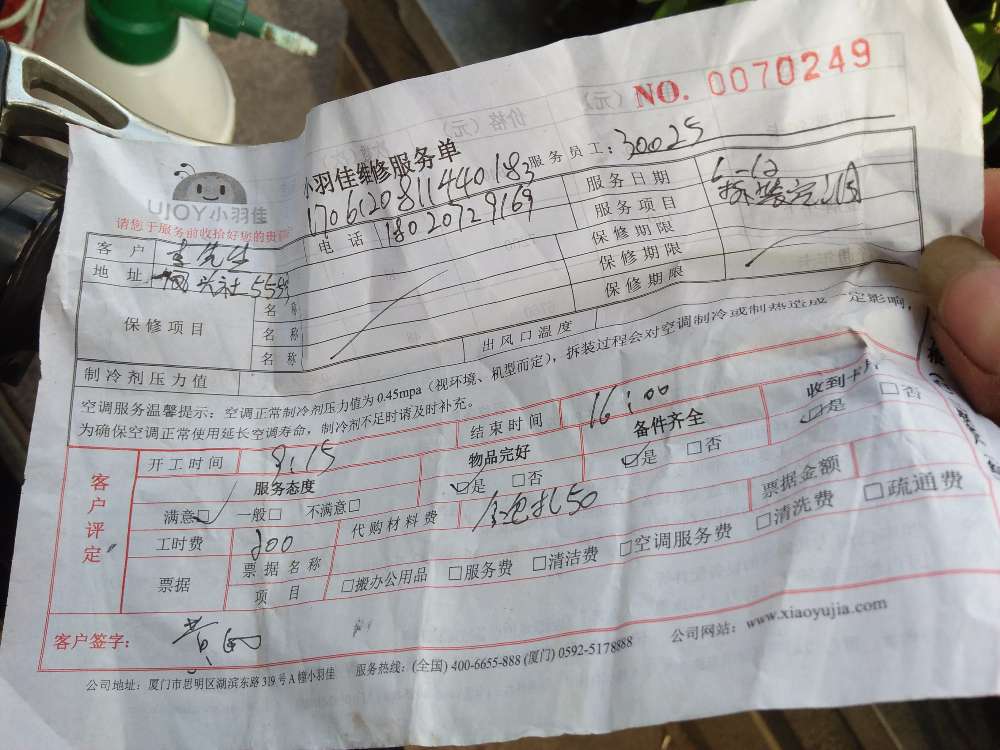 NO. 0070249
小羽佳维修服务单
UJOY小羽佳
请您于服务前收拾好您的贵
1706120811440183 服务员工：30025
客户 先生 电话 18020729169 服务日期 6-12
地址 兴社559 服务项目 拆装空调
保修项目 名称 保修期限
名称 保修期限
名称 保修期限
制冷剂压力值 出风口温度
空调服务温馨提示：空调正常制冷剂压力值为0.45mpa（视环境、机型而定），拆装过程会对空调制冷或制热造成一定影响，
为确保空调正常使用延长空调寿命，制冷剂不足时请及时补充。
客户评定
开工时间 9:15 结束时间 16:00
服务态度 物品完好 备件齐全 收到卡片
满意□ 一般□ 不满意□ □是 □否 □是 □否 □是 □否
工时费 200 代购材料费 全包扎50 票据金额
票据 票据名称
项目 □搬办公用品 □服务费 □清洁费 □空调服务费 □清洗费 □疏通费
客户签字： 黄
公司地址：厦门市思明区湖滨东路319号A幢小羽佳 服务热线：(全国) 400-6655-888 (厦门) 0592-5178888 公司网站：www.xiaoyujia.com